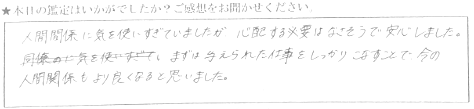 ★本日の鑑定はいかがでしたか？ご感想をお聞かせください
人間関係に気を使いすぎていましたが 心配する必要はなさそうで安心しました。
まずは与えられた仕事をしっかりこなすことで今の
人間関係もより良くなると思いました。